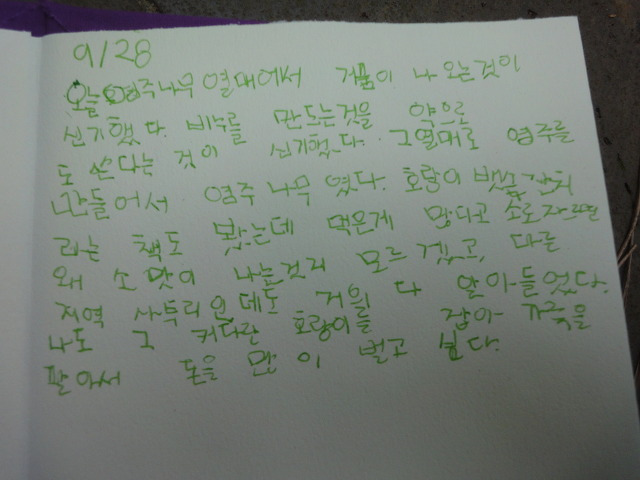 9/28
오늘 염주나무 열매에서 거품이 나오는것이
신기했다. 비누를 만드는것을 약으로
도 쓴다는 것이 신기했다. 그열매로 염주를
만들어서 염주 나무 였다. 호랑이 뱃속 잔치
라는 책도 봤는데 먹은게 많다고 소로 자르면
왜 소 맛이 나는건지 모르 겠고, 다른
지역 사투리 인데도 거의 다 알아들었다.
나도 그 커다란 호랑이를 잡아 가죽을
팔아서 돈을 많 이 벌고 싶다.